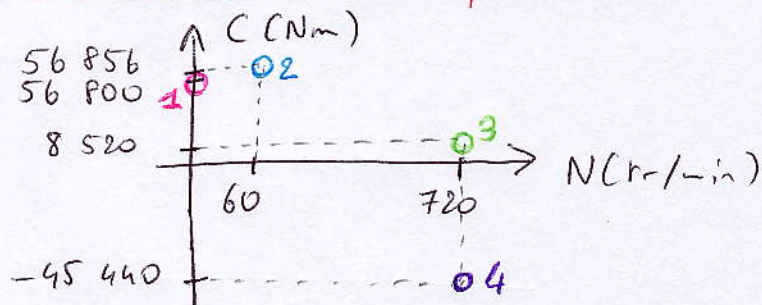 C (Nm)
56 856
2
56 800
1
8 520
3
N(tr/min)
60
720
-45 440
4